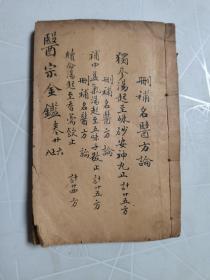 刪補名醫方論
獨參湯起至硃砂安神丸止 計廿五方
刪補名醫方論
補中益氣湯起至五味子散止 計廿五方
刪補名醫方論
續命湯起至香薷飲止 計廿四方
醫宗金鑑